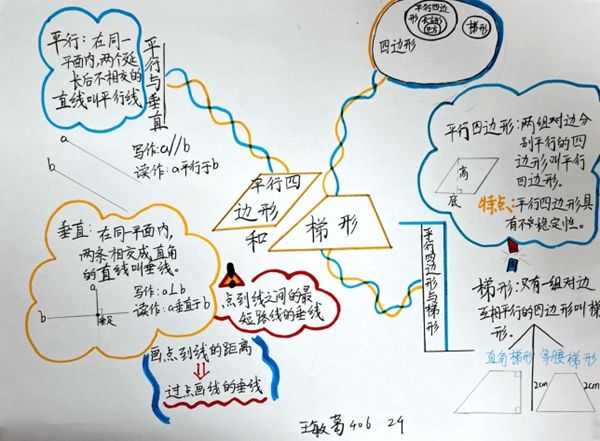 平行：在同一
平面内，两个延
长后不相交的
直线叫平行线
平行与垂直
a
b
写作：a//b
读作：a平行于b
垂直：在同一平面内，
两条相交成直角
的直线叫垂线。
a
b
垂足
写作：a⊥b
读作：a垂直于b
点到线之间的最
短路线的垂线
画点到线的距离
过点画线的垂线
平行四
边形
和
梯形
平行四边
形
长方形
四边形
梯形
平行四边形与梯形
平行四边形：两组对边分
别平行的四
边形叫平行
四边形。
高
底
特点：平行四边形具
有不稳定性。
梯形：只有一组对边
互相平行的四边形叫梯
形。
直角梯形
等腰梯形
2cm
2cm
406 24